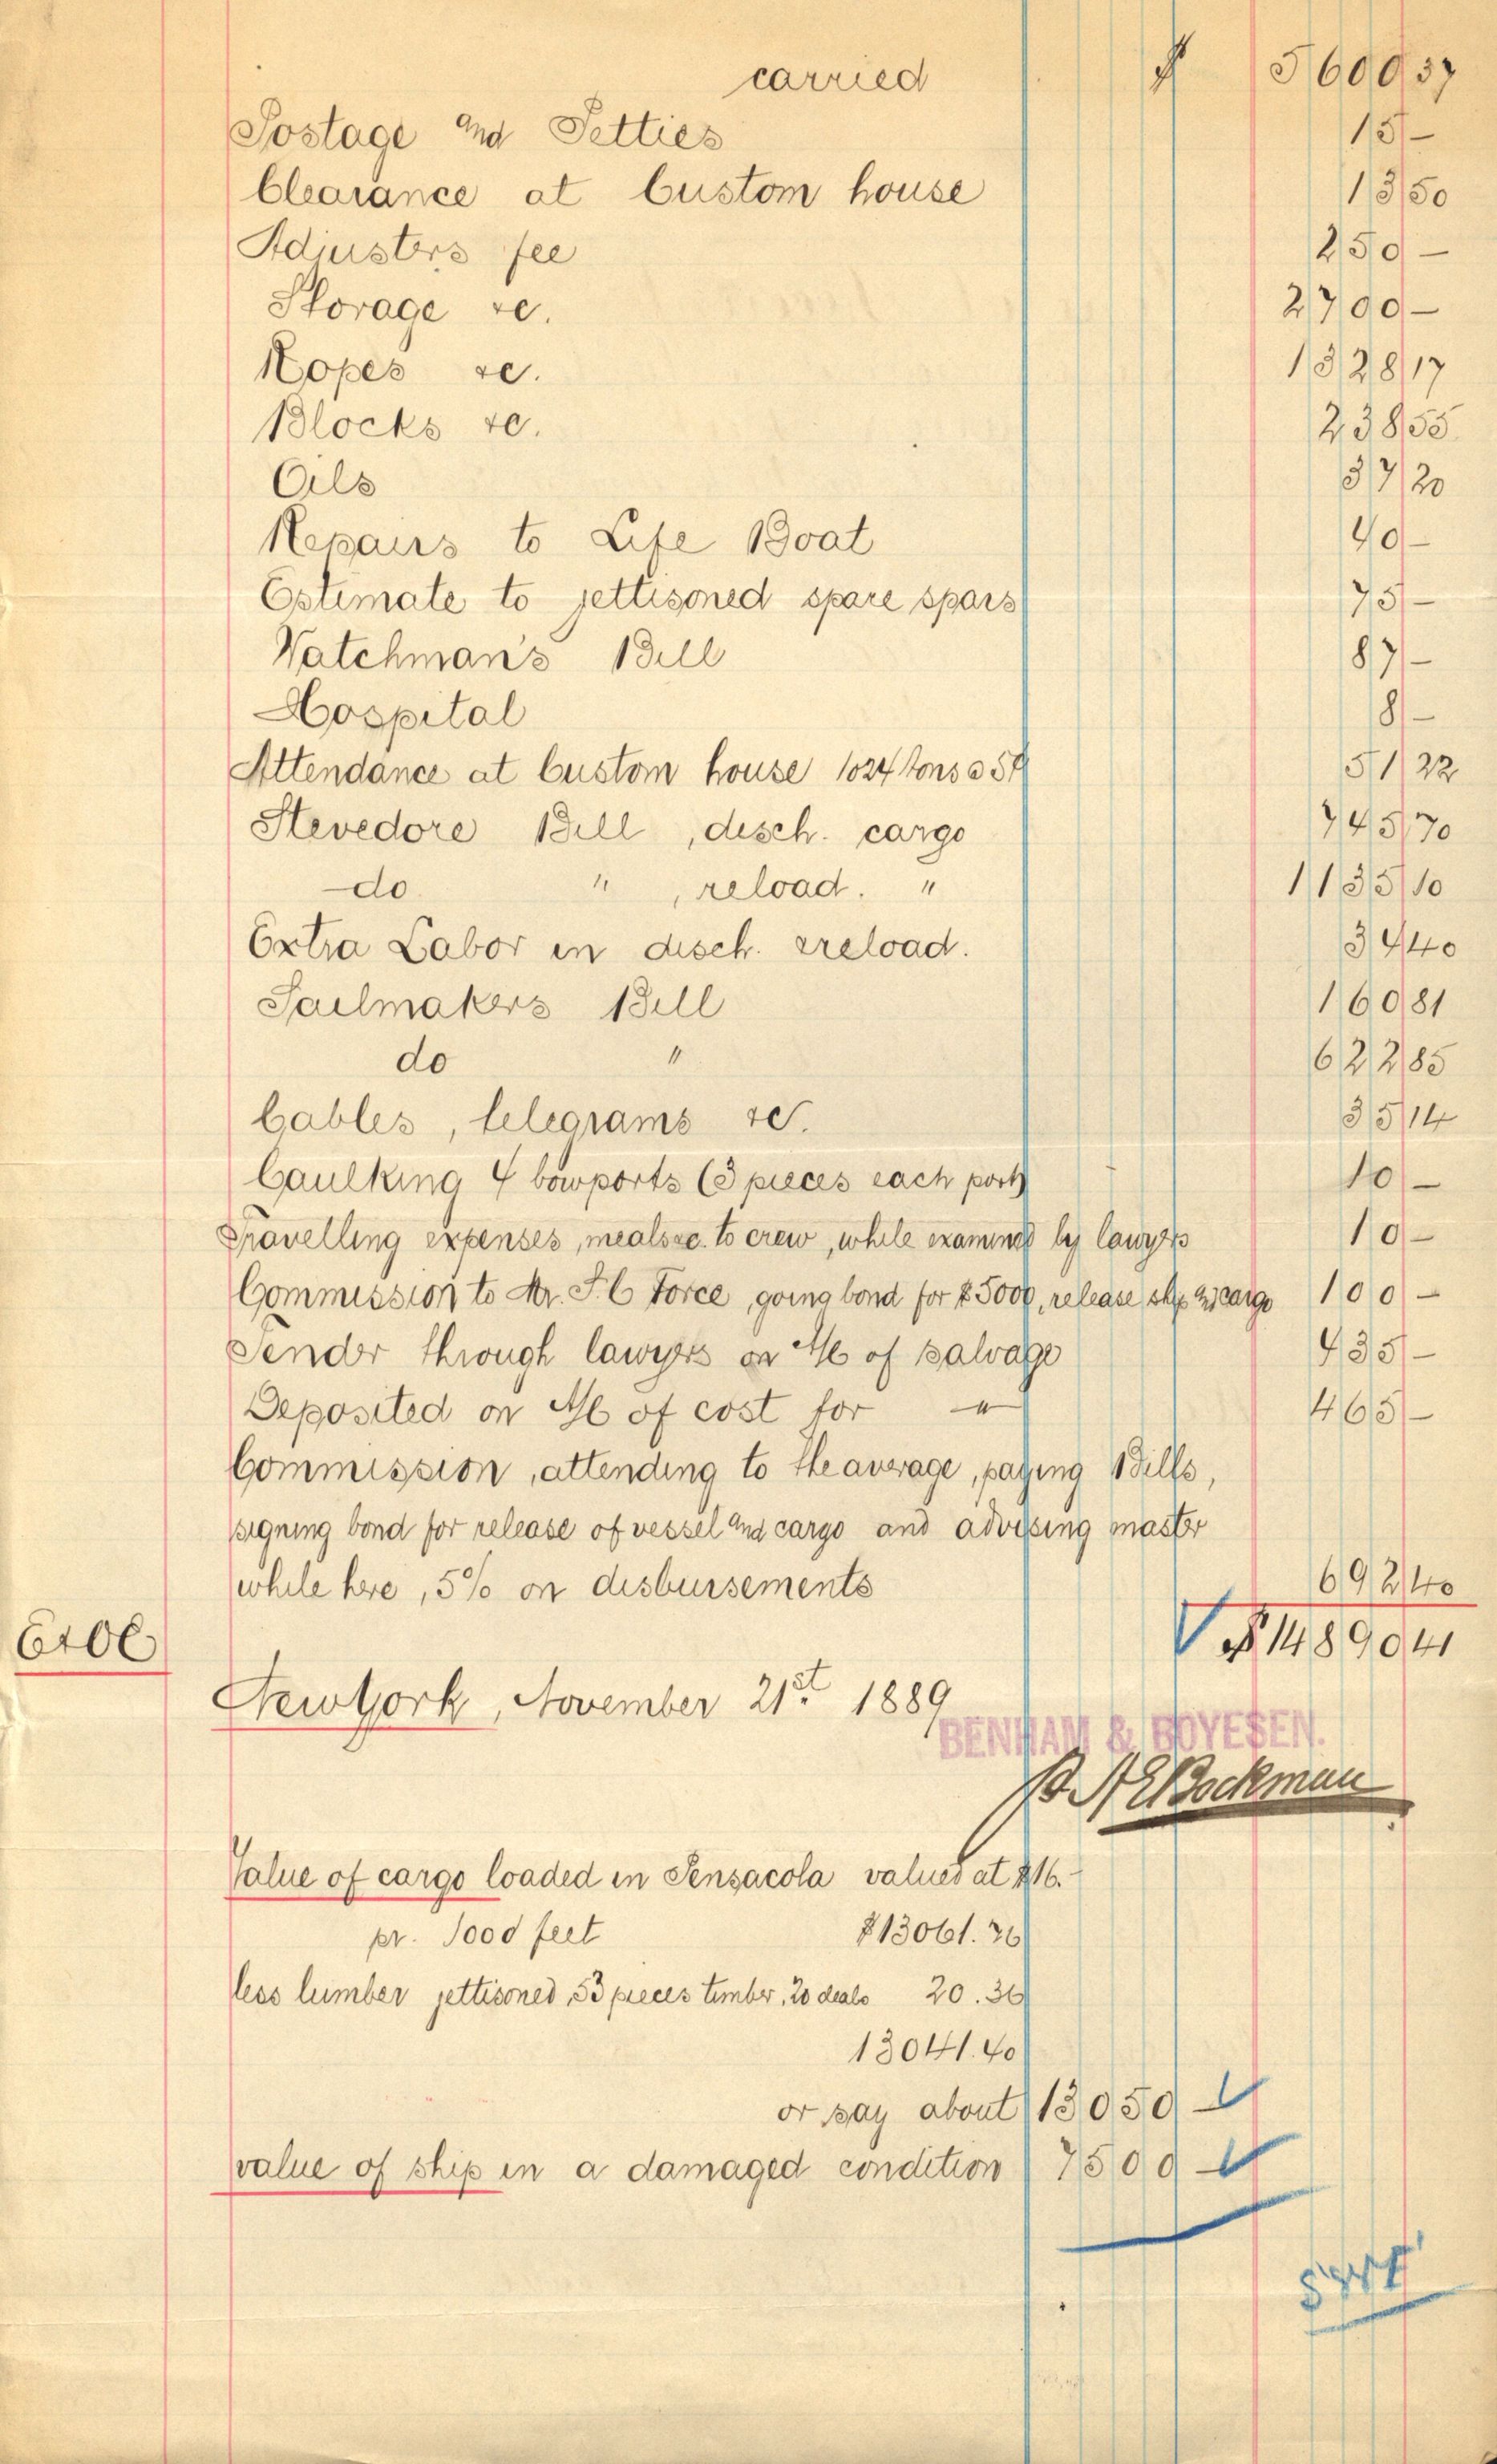 carried $ 5600 37
Postage and Petties 15 -
Clearance at Custom house 13 50
Adjusters fee 250 -
Storage &c. 2700 -
Ropes &c. 1328 17
Blocks &c. 238 55
Oils 37 20
Repairs to Life Boat 40 -
Estimate to jettisoned spare spars 75 -
Watchman's Bill 87 -
Hospital 8 -
Attendance at Custom house 1024 tons a 5¢ 51 22
Stevedore Bill, disch. cargo 745 70
do " , reload. " 1135 10
Extra Labor in disch. & reload. 34 40
Sailmakers Bill 160 81
do " 622 85
Cables, telegrams &c. 35 14
Caulking 4 bowports (3 pieces each port) 10 -
Travelling expenses, meals &c. to crew, while examined by lawyers 10 -
Commission to Mr. F. C Force, going bond for $5000, release ship and cargo 100 -
Tender through lawyers on A/C of salvage 435 -
Deposited on A/C of cost for " 465 -
Commission, attending to the average, paying Bills,
signing bond for release of vessel and cargo and advising master
while here, 5% on disbursements 692 40
E&OE $ 14890 41
New York, November 21st 1889
BENHAM & BOYESEN.
Bockman
Value of cargo loaded in Pensacola valued at $16.-
pr. 1000 feet $13061.76
less lumber jettisoned 53 pieces timber, 20 deals 20.36
13041.40
or say about 13050 -
value of ship in a damaged condition 7500 -